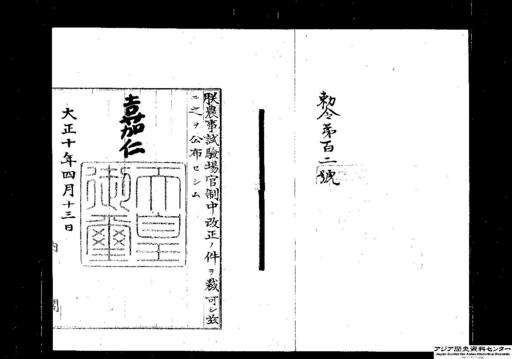 勅令第百二號
朕農事試驗場官制中改正ノ件ヲ裁可シ茲
ニ之ヲ公布セシム
嘉仁
天皇御璽
大正十年四月十三日
内閣
アジア歴史資料センター
Japan Center for Asian Historical Records